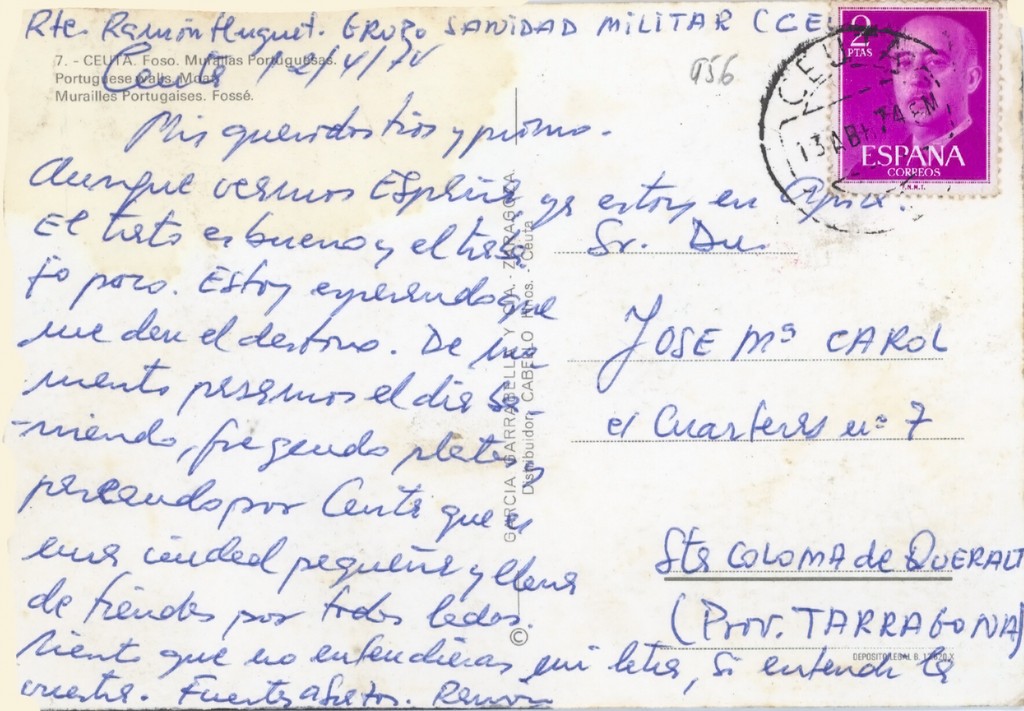 Rte. Ramón Huguet. GRUPO SANIDAD MILITAR (CEU
7. - CEUTA. Foso. Murallas Portuguesas.
Ceuta 12/4/74
Portuguese walls. Moat.
Murailles Portugaises. Fossé.
956
2
PTAS
CEUTA
13 ABR 74
ESPAÑA
CORREOS
F.N.M.T.
Mis queridos tios y primo.
Aunque veamos España, ya estoy en Africa.
El trato es bueno y el traba
jo poco. Estoy esperando que
me den el destino. De mo-
mento pasamos el dia
fregando platos y
paseando por Ceuta que es
una ciudad pequeña y llena
de tiendas por todos lados.
Siento que no entendieras mi letra, si entendí la
vuestra. Fuertes abrazos. Ramon
GARCIA GARRABELLA Y CIA. - ZARAGOZA
Distribuidor: CABELLO Hnos. Ceuta
©
Sr. Dn.
JOSE Mª CAROL
c/ Cuarteras nº 7
Sta COLOMA de QUERALT
(Prov. TARRAGONA)
DEPOSITO LEGAL B.